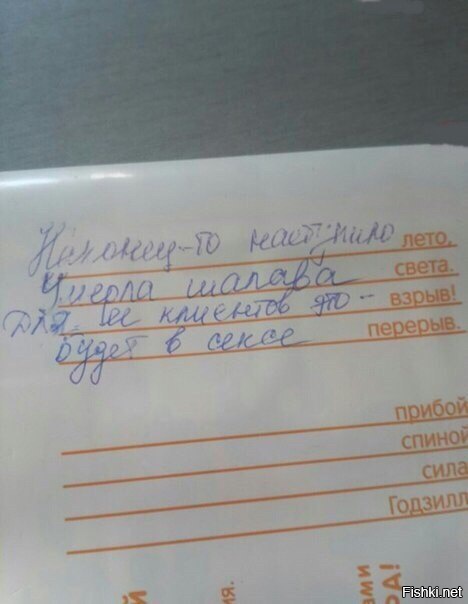 Наконец-то наступило лето,
Умерла шалава света.
Для ее клиентов это - взрыв!
Будет в сексе перерыв.
прибой
спиной
сила
Годзилл
Й
ия.
ами
А!
Fishki.net